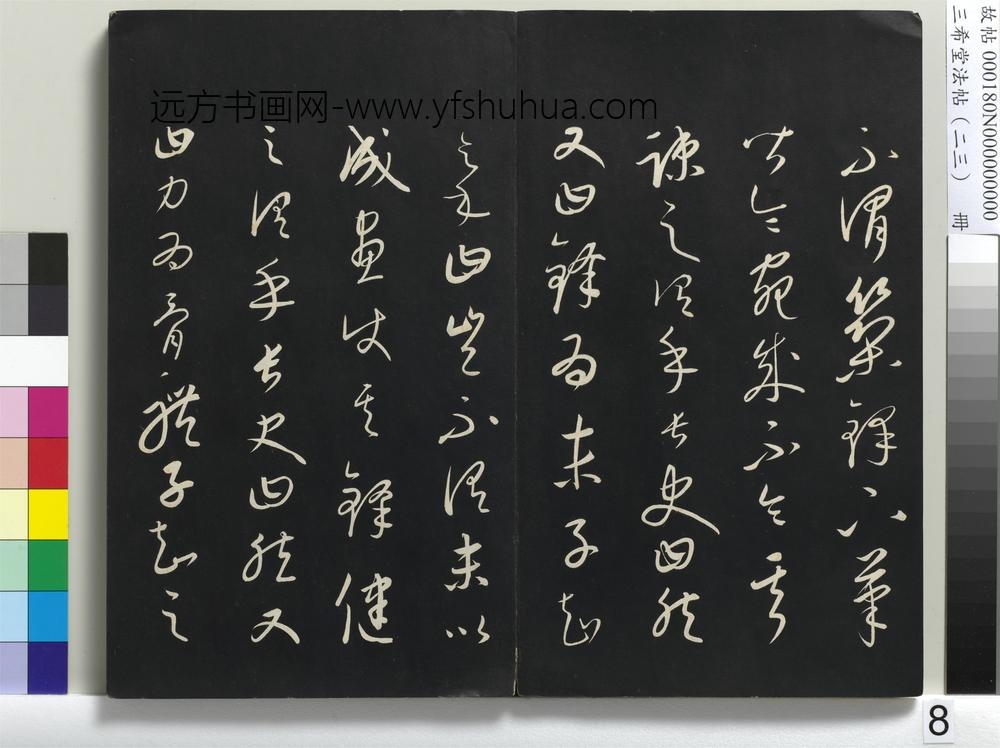 故帖 000180N000000000
三希堂法帖（二三） 冊
远方书画网-www.yfshuhua.com
不謂築鋒下筆
皆令宛成不令其
疎之謂乎長史曰然
又曰鋒為末子知
之乎曰豈不謂末以
成畫使其鋒健
之謂乎長史曰然又
曰力為骨體子知之
8